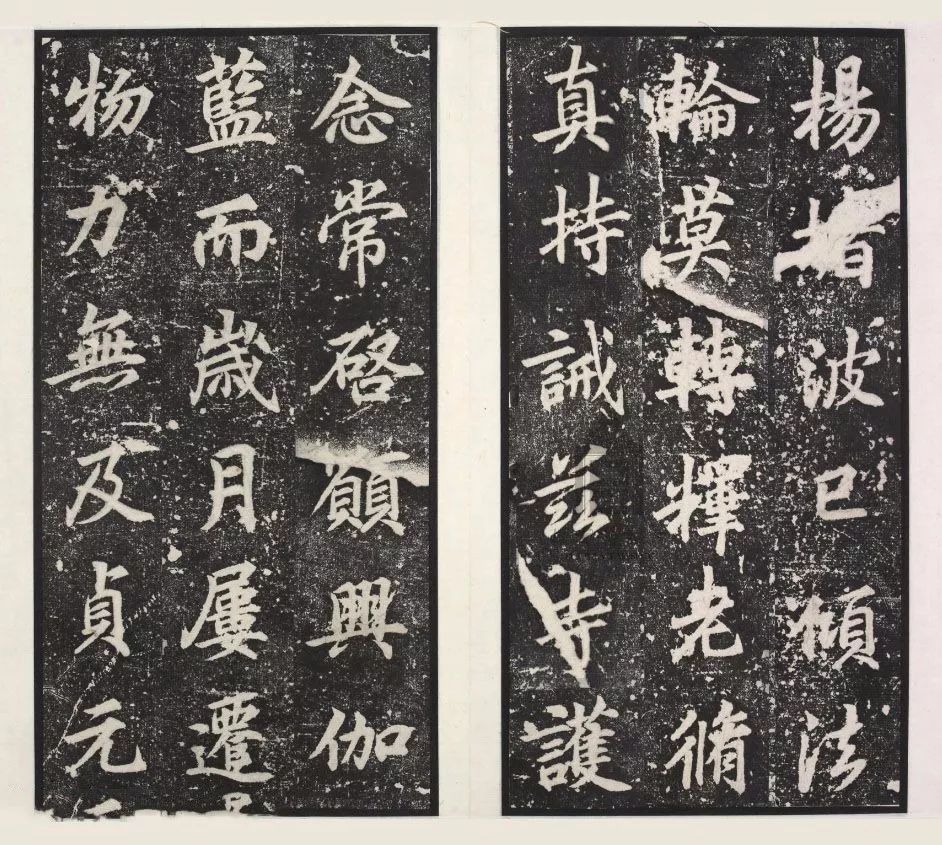 楊者波已傾法
輪莫轉禪老脩
真持誡茲寺護
念常啓願興伽
藍而歲月屢遷
物力無及貞元